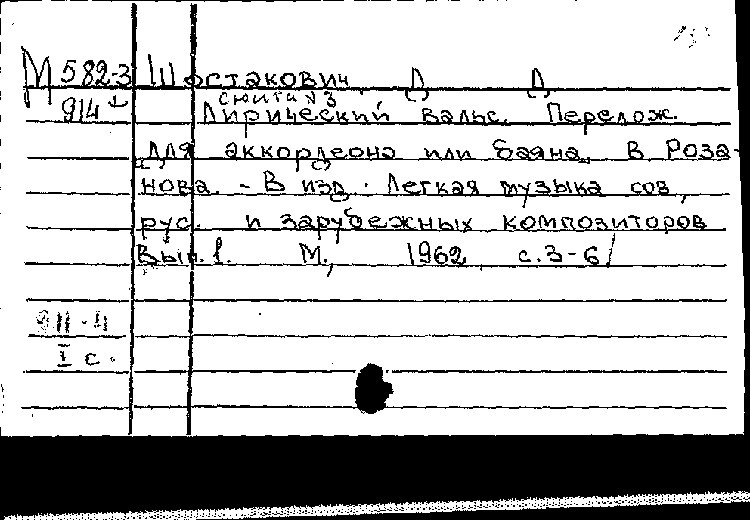 М 582-3 Шостакович Д. Д.
914 сюита №3
Лирический вальс. Перелож.
для аккордеона или баяна В Роза-
нова. - В изд. Легкая музыка сов,
рус. и зарубежных композиторов
Вып. 1. М., 1962 с. 3-6
I с.